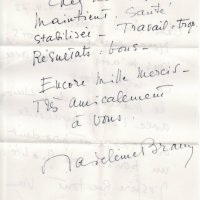 Chez
maintient. Santé
stabilisée - Travail, trop.
Résultats, bons -
Encore mille mercis -
Très amicalement
à vous.
Madeleine Braun